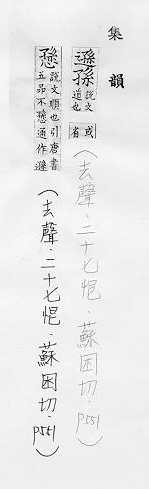 集韻
遜孫 說文遁也 或省 (去聲.二十七恨.蘇困切.p551)
愻 說文順也引唐書五品不愻通作遜 (去聲.二十七恨.蘇困切.p551)